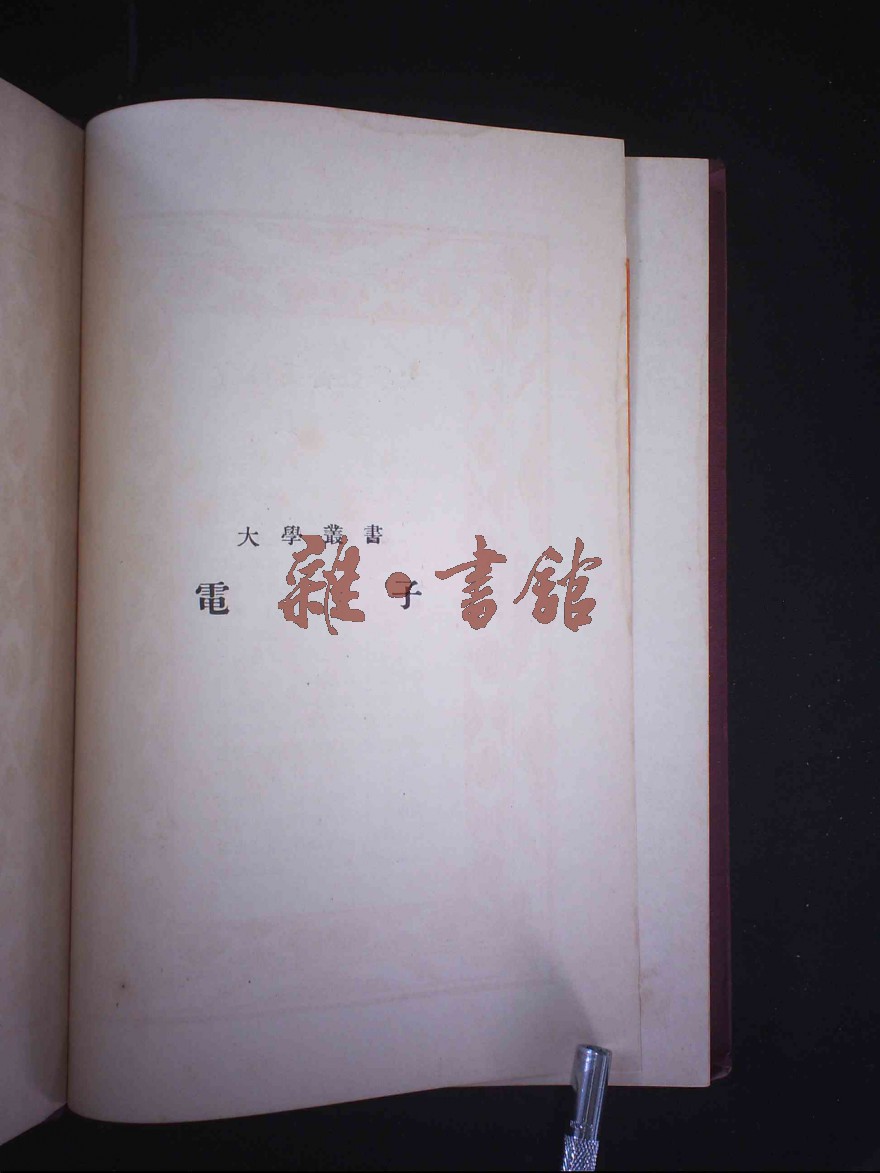 大學叢書
電子
雜·書館